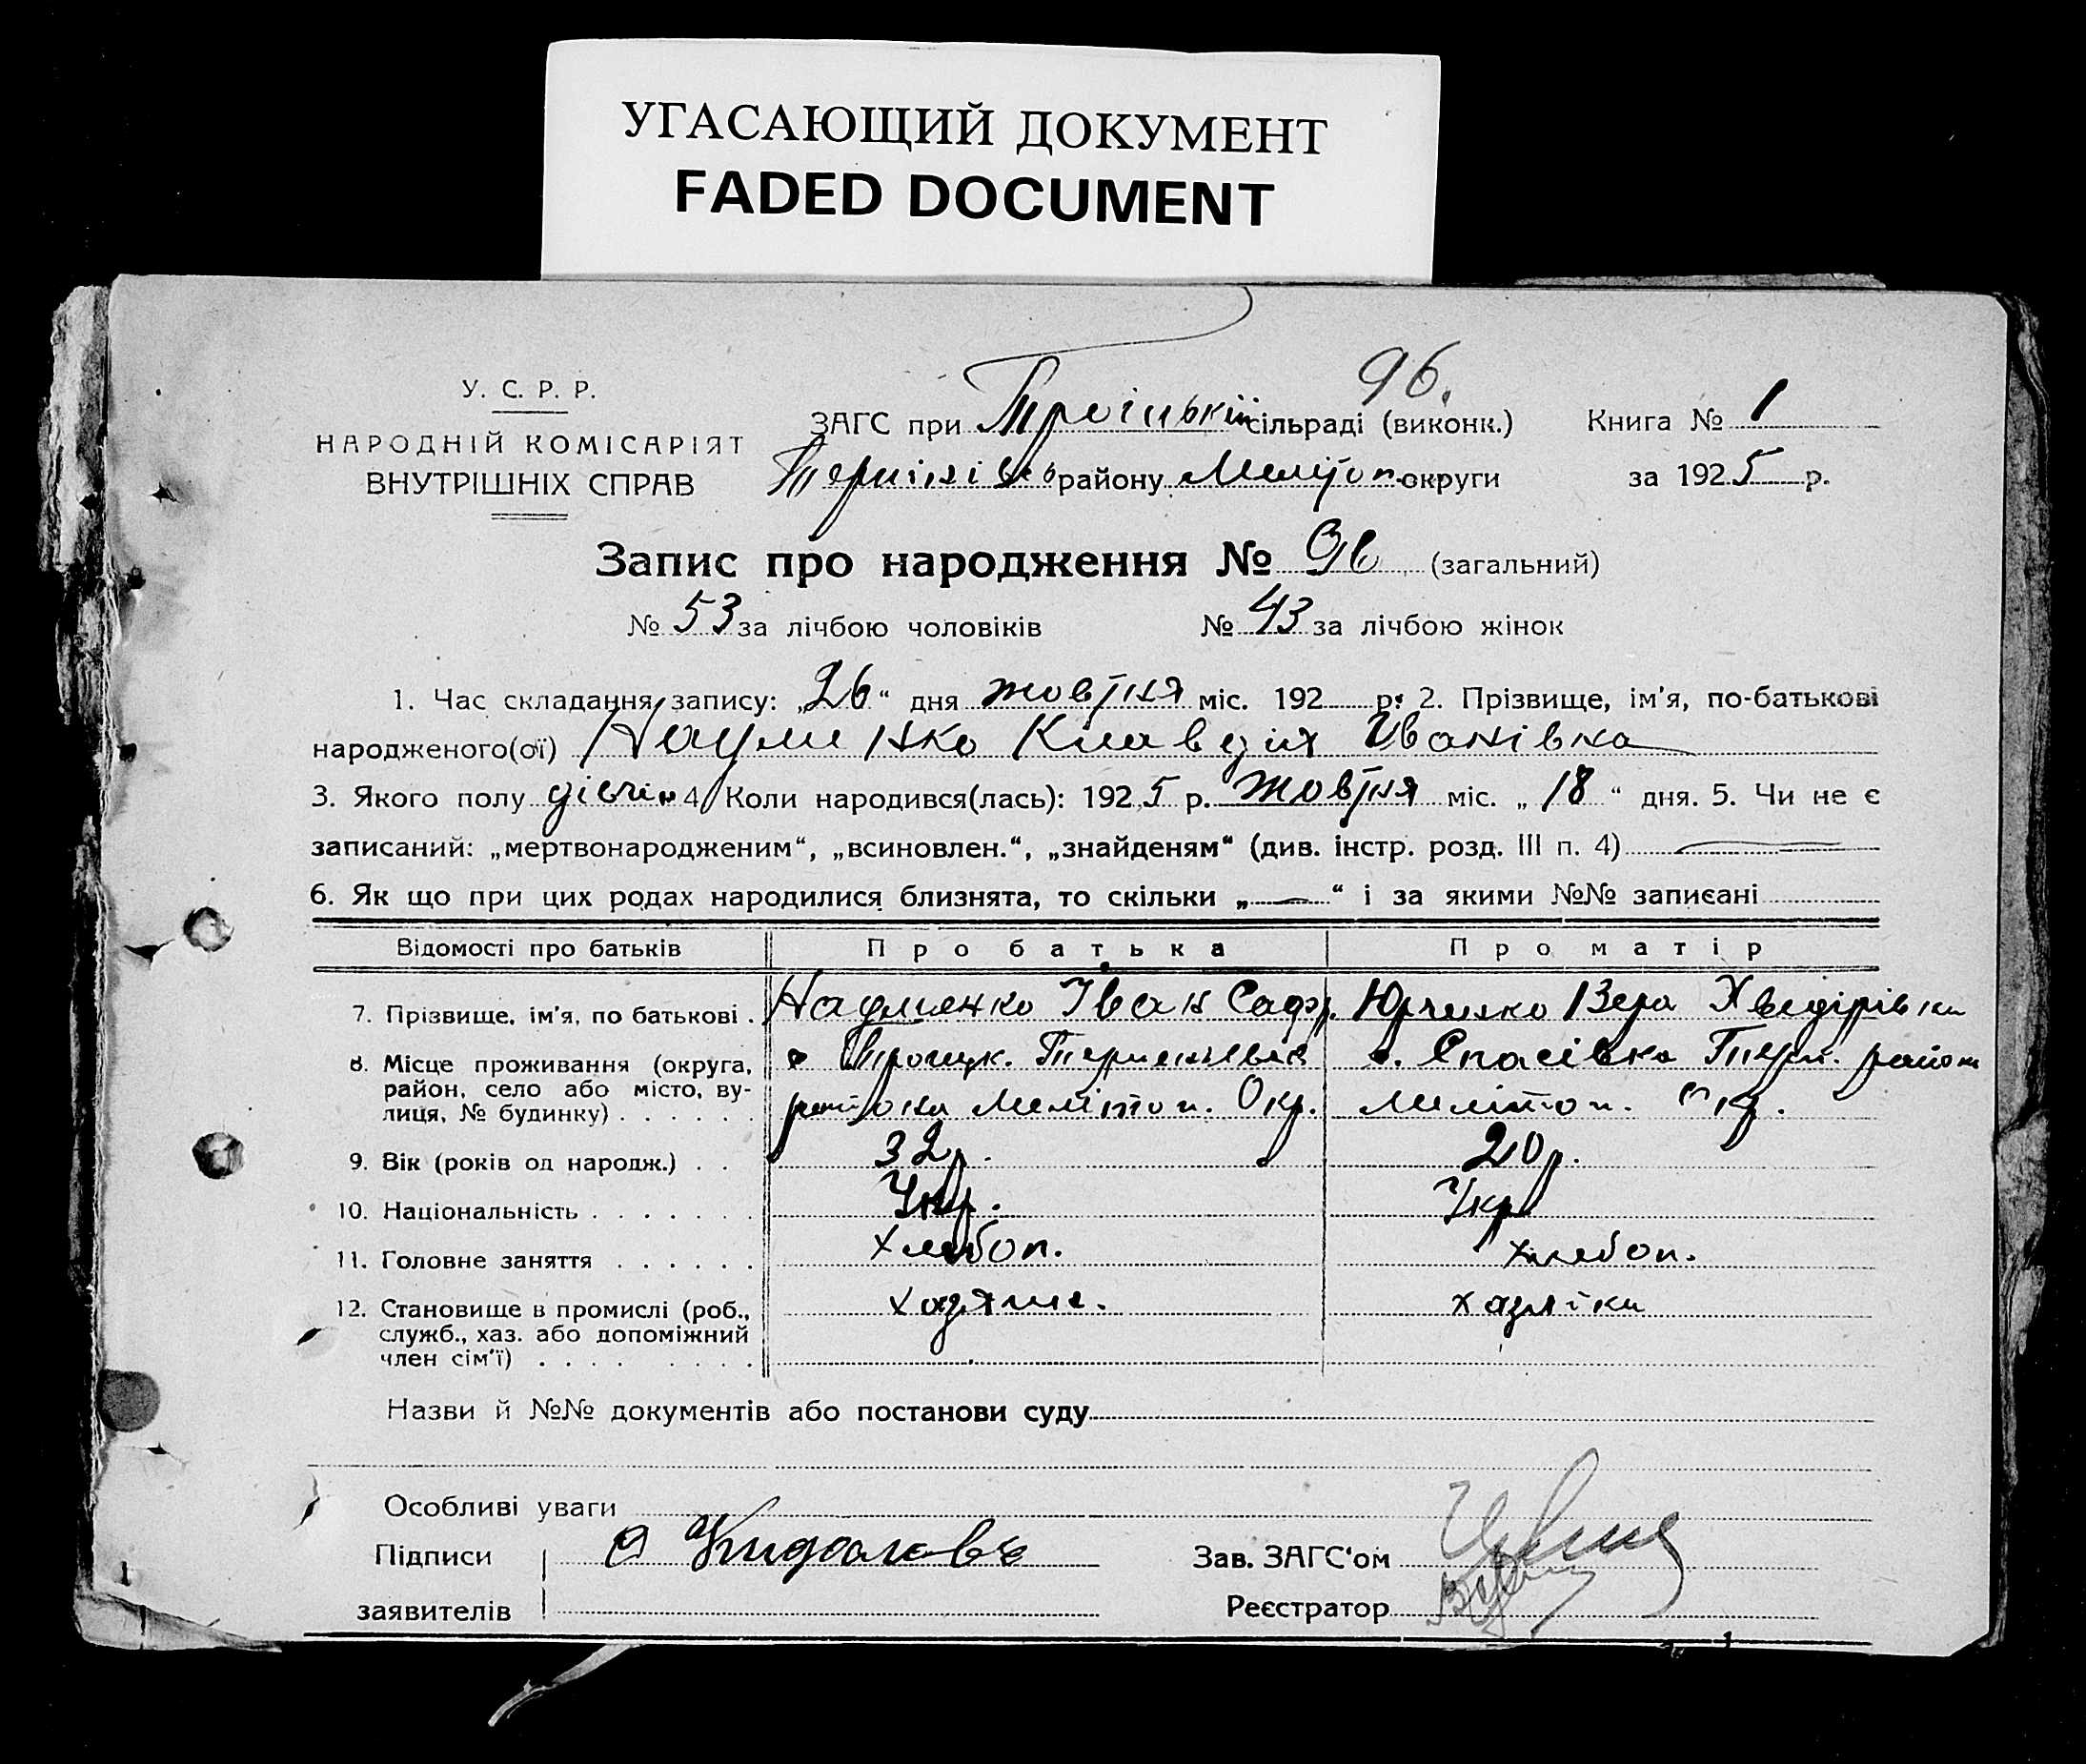 УГАСАЮЩИЙ ДОКУМЕНТ
FADED DOCUMENT
96.
У. С. Р. Р.
НАРОДНІЙ КОМІСАРІЯТ
ВНУТРІШНІХ СПРАВ
ЗАГС при Троіцькій сільраді (виконк.) Книга № 1
району Мелітоп. округи за 1925 р.
Запис про народження № 96 (загальний)
№ 53 за лічбою чоловіків № 43 за лічбою жінок
1. Час складання запису: „26“ дня жовтня міс. 192 р. 2. Прізвище, ім'я, по-батькові
народженого(ої) Науменко Клавдія Іванівна
3. Якого полу дівчин 4. Коли народився(лась): 1925 р. жовтня міс. „18“ дня. 5. Чи не є
записаний: „мертвонародженим“, „всиновлен.“, „знайденям“ (див. інстр. розд. III п. 4) —
6. Як що при цих родах народилися близнята, то скільки „—“ і за якими №№ записані
Відомості про батьків Про батька Про матір
7. Прізвище, ім'я, по батькові . Науменко Іван Юрченко Вера Хведірівна
8. Місце проживання (округа, район, село або місто, вулиця, № будинку) . . . . . .
с. Спасівка Терп. район
района Мелітоп. Окр. Мелітоп. Окр.
9. Вік (років од народж.) . . 32 р. 20 р.
10. Національність . . . . . . . Укр. Укр
11. Головне заняття . . . . . . хлебоп. хлебоп.
12. Становище в промислі (роб., служб., хаз. або допоміжний член сім'ї) . . . . . . . . хазяїка
Назви й №№ документів або постанови суду
Особливі уваги
Підписи
заявителів
Зав. ЗАГС'ом
Реєстратор
1